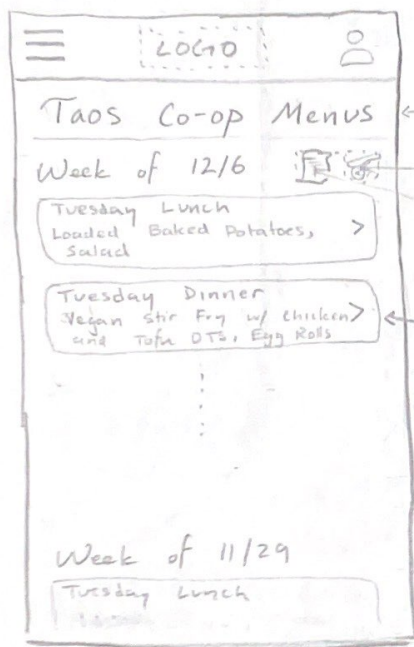 LOGO
Taos Co-op Menus
Week of 12/6
Tuesday Lunch
Loaded Baked Potatoes,
Salad
>
Tuesday Dinner
Vegan Stir Fry w/ chicken
and Tofu OTS, Egg Rolls
>
Week of 11/29
Tuesday Lunch